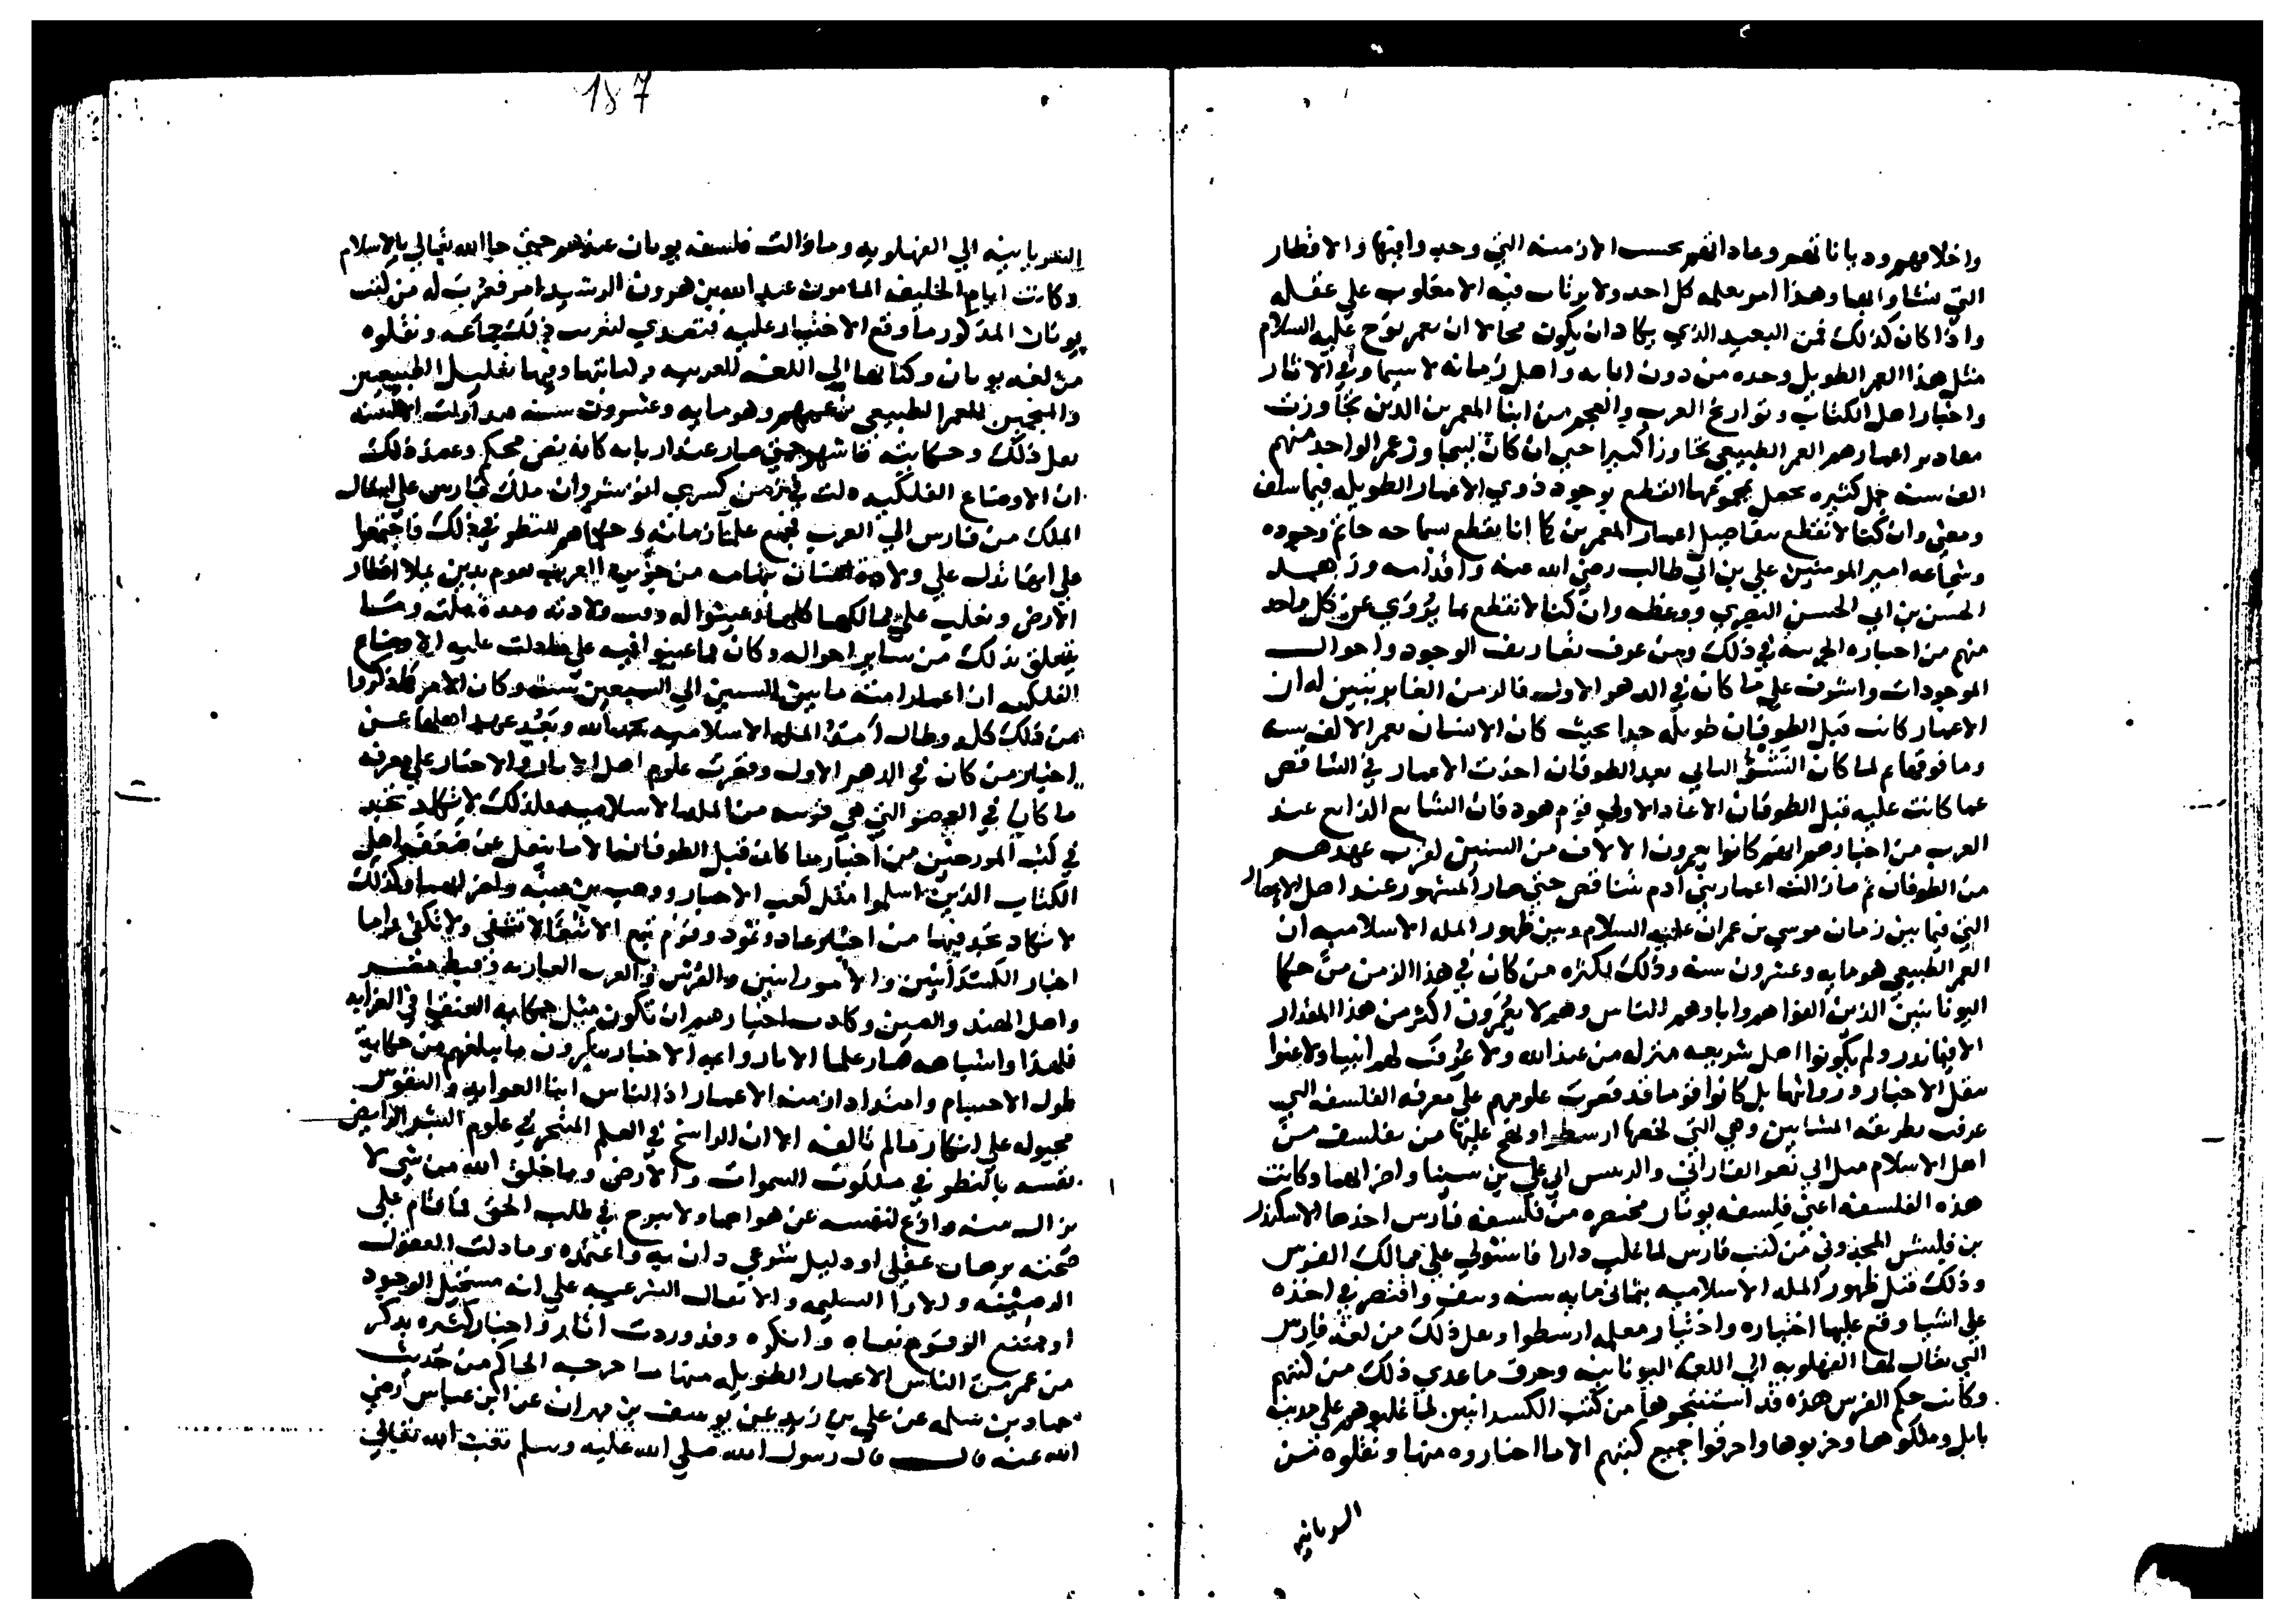 واخلاقهم ودياناتهم وعاداتهم بحسب الازمنة التي وجدوا فيها والاقطار
التي نشاوا بها وهذا امر يعلمه كل احد ولا يرتاب فيه الا مغلوب علي عقله
واذا كان كذلك فمن البعيد الذي يكاد ان يكون محالا ان يعمر نوح عليه السلام
مثل هذا العمر الطويل وحده من دون ابايه واهل زمانه لا سيما وفي الاثار
واخبار اهل الكتاب وتواريخ العرب والعجم من ابنا المعمرين الذين تجاوزت
مقادير اعمارهم العمر الطبيعي تجاوزا كبيرا حتي ان كان ليتجاوز عمر الواحد منهم
الف سنة جمل كثيره يحصل بمجموعها القطع بوجود ذوي الاعمار الطويله فيما سلف
ومضي وان كنا لا نقطع بتفاصيل اعمار المعمرين كما انا نقطع بسماحه حاتم وجوده
وشجاعه امير المومنين علي بن ابي طالب رضي الله عنه واقدامه وزهد
الحسن بن ابي الحسن البصري ووعظه وان كنا لا نقطع بما يروي عن كل واحد
منهم من اخباره الجزئيه في ذلك ومن عرف تصاريف الوجود واحوال
الموجودات واشرف علي ما كان في الدهر الاول فالزمن الغابر يتبين له ان
الاعمار كانت قبل الطوفان طويله جدا بحيث كان الانسان يعمر الالف سنه
وما فوقها ثم لما كان النشؤ الثاني بعد الطوفان اخذت الاعمار في التناقص
عما كانت عليه قبل الطوفان الا عاد الاولي قوم هود فان الشايع الذايع عند
العرب من اخبارهم انهم كانوا يعمرون الالاف من السنين لقرب عهدهم
من الطوفان ثم ما زالت اعمار بني ادم تتناقص حتي صار المشهور عند اهل الاجيال
التي فيما بين زمان موسي بن عمران عليه السلام وبين ظهور المله الاسلاميه ان
العمر الطبيعي هو مايه وعشرون سنه وذلك لكثره من كان في هذا الزمن من حكما
اليونانيين الذين الفوا هم واباوهم الناس وهم لا يعمرون اكثر من هذا المقدار
الا في النادر ولم يكونوا اهل شريعه منزله من عند الله ولا عرفت لهم انبيا ولا عنوا
بنقل الاخبار وروايتها بل كانوا قوما قد قصرت علومهم علي معرفه الفلسفه التي
عرفت بطريقه المشايين وهي التي لخصها ارسطو او نهج عليها من تفلسف من
اهل الاسلام مثل ابي نصر الفارابي والرييس ابي علي بن سينا واضرابهما وكانت
هذه الفلسفه اعني فلسفه يونان مختصره من فلسفه فارس اخذها الاسكندر
بن فليبش المجذوني من كتب فارس لما غلب دارا فاستولي علي ممالك الفرس
وذلك قبل ظهور المله الاسلاميه بثمانيمايه سنه ونيف واقتصر في اخذه
علي اشيا وقع عليها اختياره واختيار معلمه ارسطوا ونقل ذلك من لغه فارس
التي يقال لها الفهلويه الي اللغه اليونانيه وحرق ما عدي ذلك من كتبهم
وكانت حكم الفرس هذه قد استنتجوها من كتب الكسدانيين لما غلبوهم علي مدينه
بابل وملكوها وخربوها واحرقوا جميع كتبهم الا ما اختاروه منها ونقلوه من
السريانيه
187
السريانيه الي الفهلويه وما زالت فلسفه يونان عندهم حتي جا الله تعالي بالاسلام
وكانت ايام الخليفه المامون عبد الله بن هرون الرشيد امر فعربت له من كتب
يونان المذكور ما وقع الاختيار عليه فتصدي لتعريب ذلك جماعه ونقلوه
من لغه يونان وكتابتها الي اللغه العربيه وكتابتها وفيها تعليل الطبيعيين
والمنجمين للعمر الطبيعي بزعمهم وهو مايه وعشرون سنه فتداولت الالسنه
نقل ذلك وحكايته فاشتهر حتي صار عند اربابه كانه نص محكم وعند ذلك
ان الاوضاع الفلكيه دلت في زمن كسري انوشروان ملك فارس علي انتقال
الملك من فارس الي العرب فجمع علما زمانه وحكماهم للنظر في ذلك فاجتمعوا
علي انها تدل علي ولاده انسان بتهامه من جزيره العرب يقوم بدين يملا اقطار
الارض ويغلب علي ممالكها كلها وعينوا له وقت ولادته ومده ملته وما
يتعلق بذلك من ساير احواله وكان مما عينوا فيه علي ما دلت عليه الاوضاع
الفلكيه ان اعمار امته ما بين الستين الي السبعين سنه وكان الامر كما ذكروا
من ذلك كله وطال امد المله الاسلاميه بحمد الله وبعد عهد اهلها عن
اخبار من كان في الدهر الاول وقصرت علوم اهل الاثار والاخبار علي معرفه
ما كان في العصور التي هي قريبه من المله الاسلاميه فلذلك لا تكاد تجد
في كتب المورخين من اخبار ما كان قبل الطوفان الا ما ينقل عن ضعفه اهل
الكتاب الذين اسلموا مثل كعب الاحبار ووهب بن منبه واضرابهما وكذلك
لا تكاد تجد فيها من اخبار عاد وثمود وقوم تبع الا شيا لا تشفي ولا تكفي واما
اخبار الكسدانيين والاثورانيين والفرس والعرب العاربه وقبط مصر
واهل الهند والصين وكادت اخبارهم ان تكون مثل حكايه العنقا في الغرابه
فلهذا واشباهه صار علما الاثار ورواه الاخبار ينكرون ما يبلغهم من حكايه
طول الاجسام وامتداد ازمنه الاعمار اذ الناس ابنا العوايد والنفوس
مجبوله علي انكار ما لم تالفه الا ان الراسخ في العلم المتبحر في علوم البشر الرايض
نفسه بالنظر في ملكوت السموات والارض وما خلق الله من شي لا
يزال وازع لنفسه عن هواها ولا يبرح في طلب الحق فما قام علي
صحته برهان عقلي او دليل شرعي دان به واعتمده وما دلت العقول
الرصينه والارا السليمه والاقوال الشرعيه علي انه مستحيل الوجود
او ممتنع الوقوع نفاه وانكره وقد وردت اثار واخبار كثيره بذكر
من عمر من الناس الاعمار الطويله منها ما خرجه الحاكم من حديث
حماد بن سلمه عن علي بن زيد عن يوسف بن مهران عن ابن عباس رضي
الله عنه قال قال رسول الله صلي الله عليه وسلم بعث الله تعالي